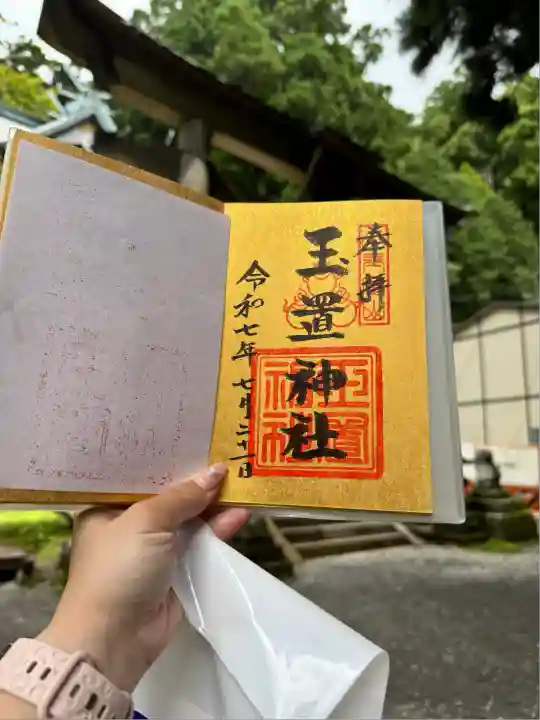 奉拝
玉置神社
令和七年七月二十一日